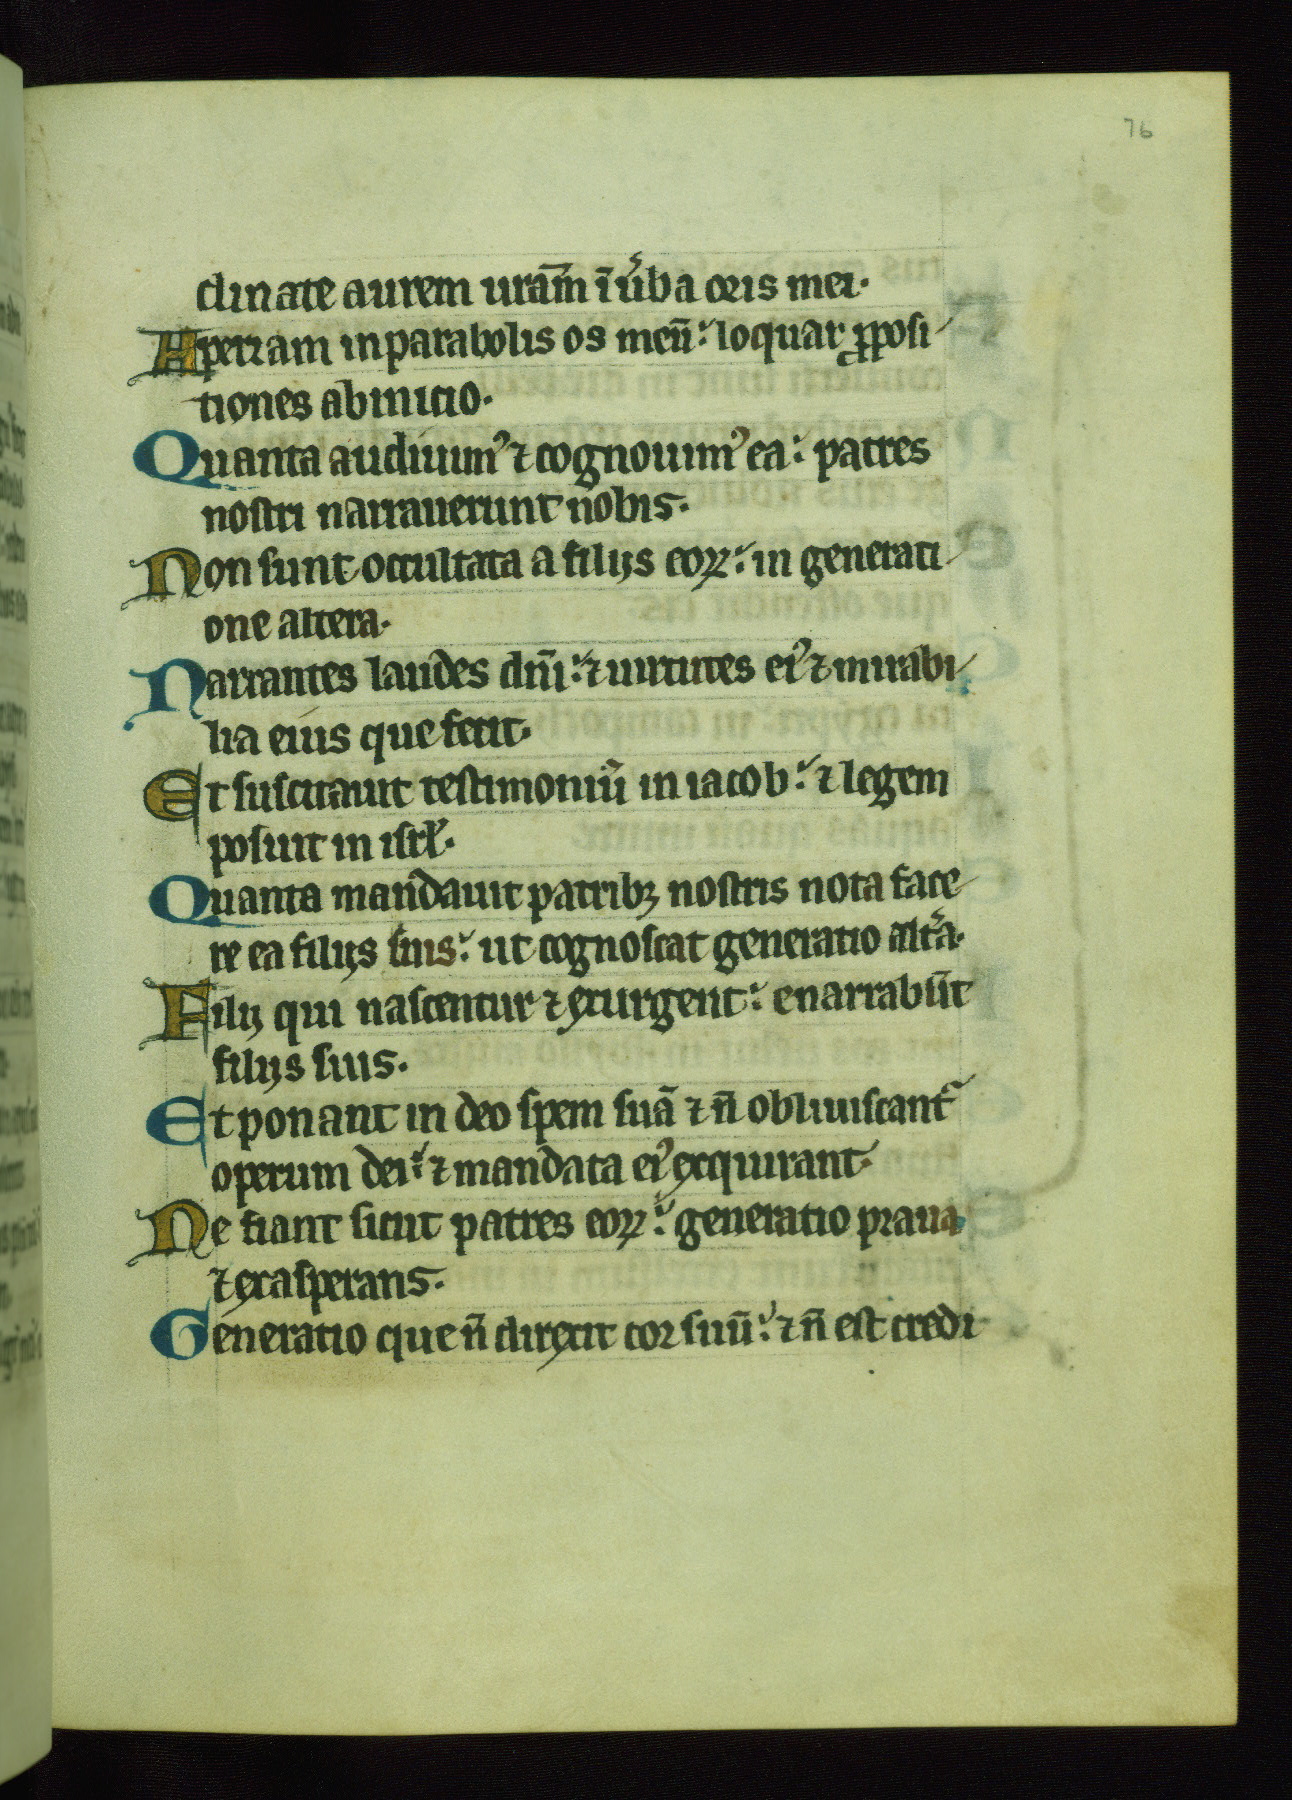 76
clinate aurem urām ī u̾ba oris mei.
Aperiam in parabolis os meū: loquar ꝓposi
tiones ab inicio.
Quanta audiuim᾿ ⁊ cognouim᾿ ea: patres
nostri narrauerunt nobis.
Non sunt occultata a filijs eoꝝ: in generati
one altera.
Narrantes laudes dn̄i: ⁊ uirtutes ei᾿ ⁊ mirabi
lia eius que fecit.
Et suscitauit testimoniū in iacob: ⁊ legem
posuit in isrl̾.
Quanta mandauit patribꝫ nostris nota face
re ea filijs suis: ut cognoscat generatio alt̾a.
Filij qui nascentur ⁊ exurgent: enarrabūt
filijs suis.
Et ponant in deo spem suā ⁊ n̄ obliuiscant᷑
operum dei: ⁊ mandata ei᾿ exquirant.
Ne fiant sicut patres eoꝝ: generatio praua
⁊ exasperans.
Generatio que n̄ direxit cor suū: ⁊ n̄ est credi